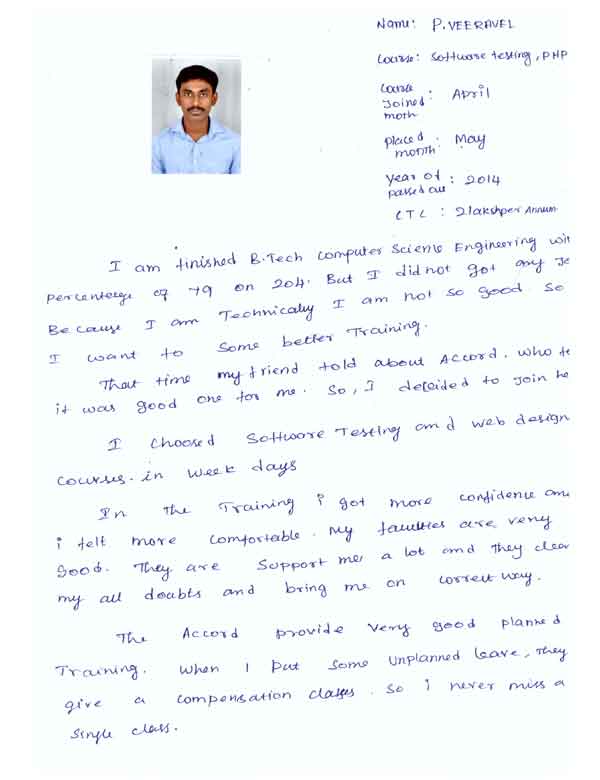 Name: P.VEERAVEL
Course: Software testing, PHP
Course
Joined : April
moth
placed : May
month
year of : 2014
passed out
CTC : 2lakshper Annum
I am finished B.Tech computer Science Engineering wit
percentage of 79 on 204. But I did not got any Jo
Because I am Technically I am not so good so
I want to some better Training.
That time my friend told about Accord. who te
it was good one for me. So, I decided to join he
I choosed Software Testing and web design
courses. in week days
In the Training i got more confidence and
i felt more comfortable. My faculties are very
good. They are support me a lot and they clear
my all doubts and bring me on correct way.
The Accord provide very good planned
Training. When I put some unplanned leave, they
give a compensation classes. So i never miss a
single class.